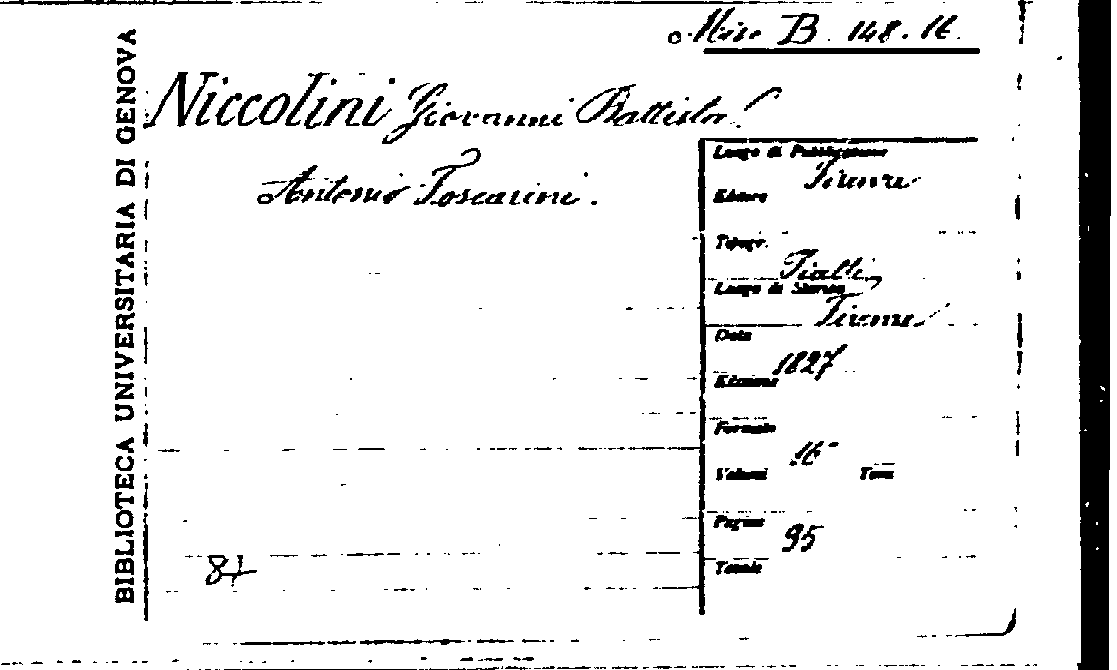 Misc. B. 148. 16.
BIBLIOTECA UNIVERSITARIA DI GENOVA
Niccolini Giovanni Battista
Antonio Foscarini.
Luogo di Pubblicazione
Firenze
Editore
Tipogr.
Piatti
Luogo di Stampa
Firenze
Data
1827
Edizione
Formato
16°
Volumi Tomi
Pagine
95
Tavole